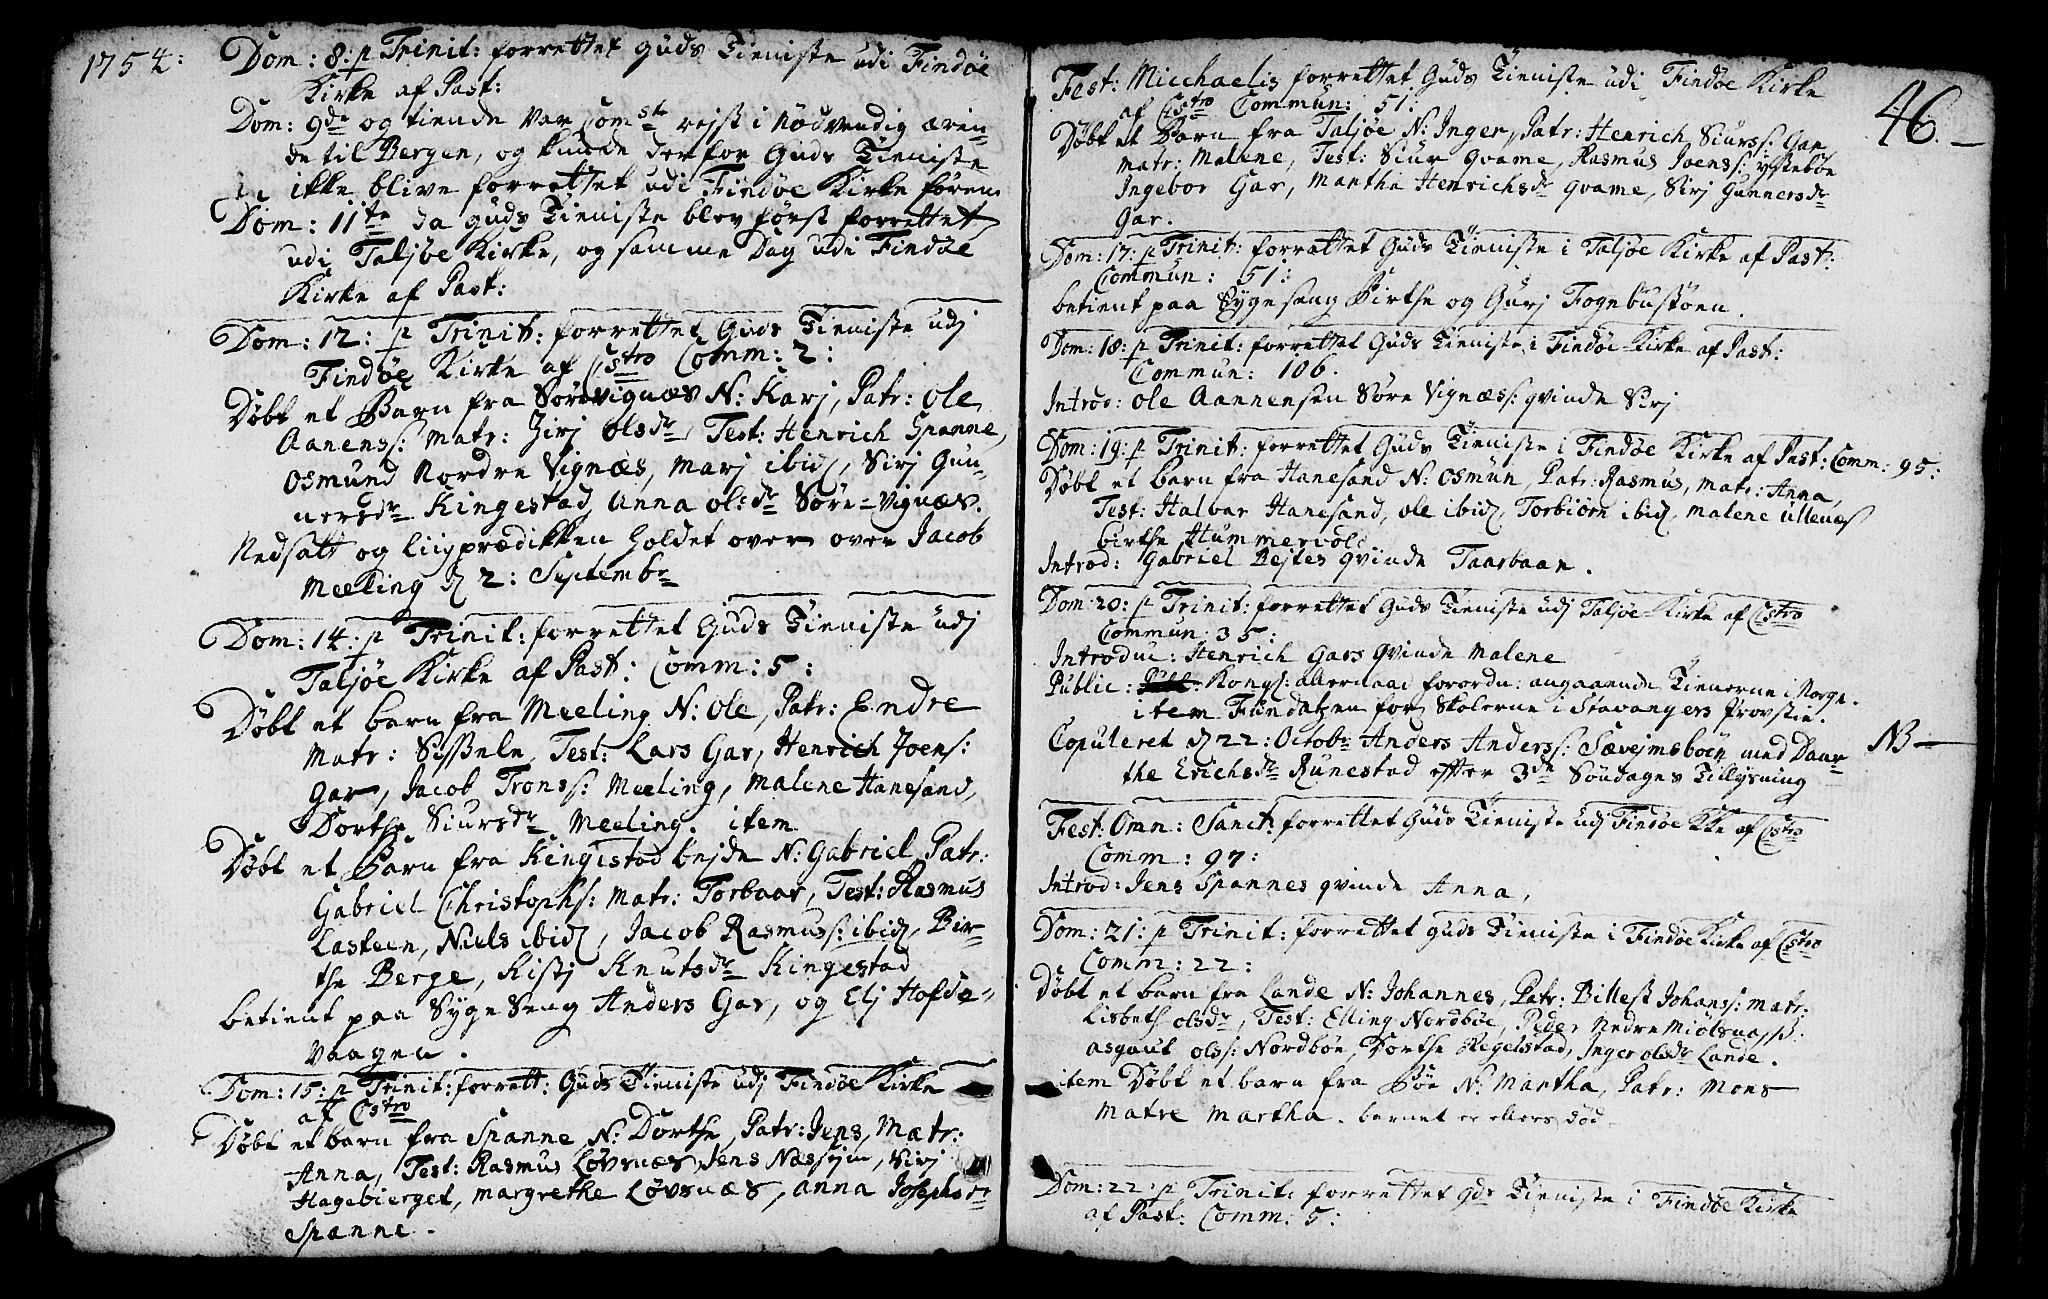 1754:
Dom: 8: p Trinit: forrettet Guds Tieniste udi Findøe
Kirke af Past:
Dom: 9de og tiende var som st rejst i nødvendig æren-
de til Bergen, og kunde derfor Guds Tieniste
ikke blive forrettet udi Findøe Kirke förend
Dom: 11te da Guds Tieniste blev först forrettet
udi Taljøe Kirke, og samme Dag udi Findøe
Kirke af Past:
Dom: 12: p Trinit: forrettet Guds Tieniste udj
Findøe Kirke af Cstro Comm: 2:
Døbt et Barn fra Sörevignæs N: Karj, Patr: Ole
Aanens: Matr: Zirj Olsdr, Test: Henrich Spanne,
Osmund Nordre Vignæs, Marj ibid, Sirj Gun-
nersdr Kingestad, Anna Ol:dr Søre-Vignæs.
Nedsatt og liigprædikken holdet over over Jacob
Meeling d 2: Septembr
Dom: 14: p Trinit: forrettet Guds Tieniste udj
Taljøe Kirke af Past: Comm: 5:
Døbt et barn fra Meeling N: Ole, Patr: Endre
Matr: Sisseln Test: Lars Gar, Henrich Joens:
Gar, Jacob Trons: Meeling, Malene Hanesand,
Dorthe Siursdr Meeling. item
Døbt et Barn fra Kingistad bejde N: Gabriel, Patr:
Gabriel Christophs: Matr: Torbaar, Test: Rasmus
Lasteen, Niels ibid, Jacob Rasmuss: ibid, Bir-
the Berge, Kistj Knutsdr Kingestad
betient paa Syge Seng Anders Gar, og Elj Hofde-
vaagen.
Dom: 15: p Trinit: forrett: Guds Tieniste udj Findøe Kirke
af Cstro
Døbt et barn fra Spanne N: Dorthe, Patr: Jens, Matr:
Anna, Test: Rasmus Løvsnæs, Jens Næssejm, Sirj
Hagebierget, Margrethe Løvsnæs, Anna Josephsdr
Spanne.
46.
Fest: Micchaelis forrettet Guds Tieniste udi Findøe Kirke
af Cstro Commun: 51:
Døbt et Barn fra Taljøe N: Inger, Patr: Henrich Siurss: Gar
Matr: Malene, Test: Siur Qvame, Rasmus Joenss: Ystebøe
Ingebor Gar, Martha Henrichsdr Qvame, Sirj Gunnersdr
Gar.
Dom: 17: p Trinit: forrettet Guds Tieniste i Taljøe Kirke af Past:
Commun: 51:
betient paa Sygeseng Birthe og Gurj Fognbustøen.
Dom: 18: p Trinit: forrettet Guds Tieniste i Findøe Kirke af Past:
Commun: 106.
Introd: Ole Aannensen Søre Vignæss: qvinde Sirj
Dom: 19: p Trinit: forrettet Guds Tieniste i Findøe Kirke af Past: Comm: 95:
Døbt et barn fra Hanesand N: Osmun, Patr: Rasmus, Matr: Anna,
Test: Halvar Hanesand, Ole ibid, Torbiörn ibid, Malene Ullenæs
Birthe Hummervold
Introd: Gabriel Bejtes Qvinde Taarbaar.
Dom: 20: p Trinit: forrettet Guds Tieniste udj Taljøe Kirke af Cstro
Commun: 35:
Introduc: Henrich Gars Qvinde Malene
Public: Kongs: allernaad forordn: angaaende Tienerne i Norge.
item Fundatzen for Skolerne i Stavangers Provstie.
Copuleret d 22: Octobr Anders Anderss: Sævejmsbøen med Daar-
the Erichsdr Runestad efter 3de Søndages Tillysning
NB
Fest: Omn: Sanct: forrettet Guds Tieniste udj Findøe Kke af Cstro
Comm: 97:
Introd: Jens Spannes qvinde Anna,
Dom: 21: p Trinit: forrettet Guds Tieniste i Findøe Kirke af Cstro
Comm: 22:
Døbt et barn fra Lande N: Johannes, Patr: Billest Johanss: Matr:
Lisbeth Olsdr, Test: Elling Nordbøe, Peder Nedre Miølsnæss:
Asgaut Olss: Nordbøe, Dorthe Regelstad, Inger Olsdr Lande.
item Døbt et barn fra Bøe N: Martha, Patr: Mons
Matre Martha. barnet er ellers død
Dom: 22: p Trinit: forrettet Gds Tieniste i Findøe Kirke
af Past: Comm: 5: